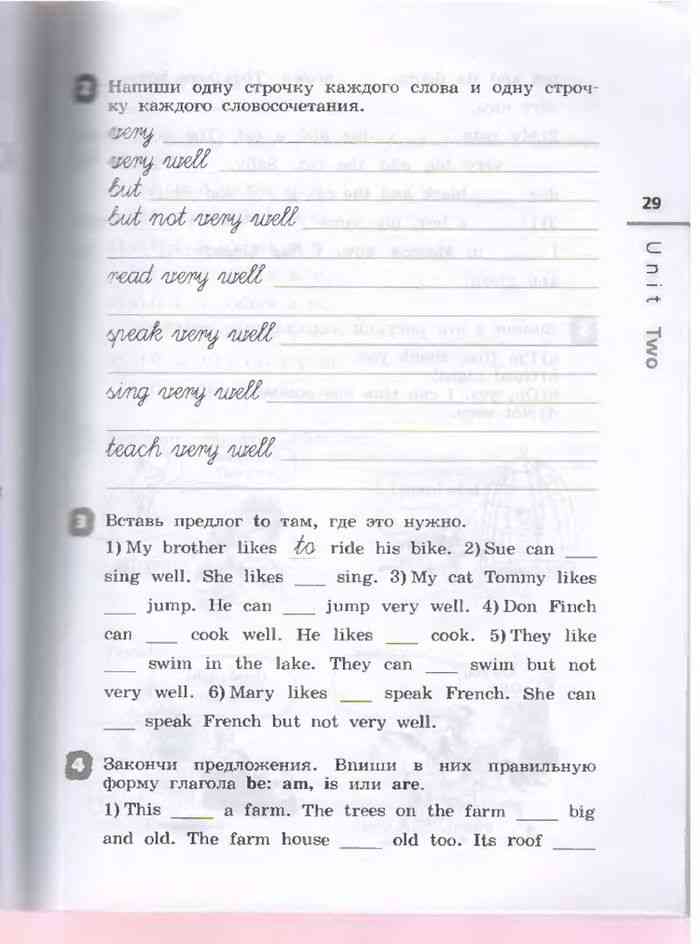 2 Напиши одну строчку каждого слова и одну строч-
ку каждого словосочетания.
very
very well
but
but not very well
read very well
speak very well
sing very well
teach very well
29
Unit Two
3 Вставь предлог to там, где это нужно.
1) My brother likes to ride his bike. 2) Sue can ___
sing well. She likes ___ sing. 3) My cat Tommy likes
___ jump. He can ___ jump very well. 4) Don Finch
can ___ cook well. He likes ___ cook. 5) They like
___ swim in the lake. They can ___ swim but not
very well. 6) Mary likes ___ speak French. She can
___ speak French but not very well.
4 Закончи предложения. Впиши в них правильную
форму глагола be: am, is или are.
1) This ___ a farm. The trees on the farm ___ big
and old. The farm house ___ old too. Its roof ___